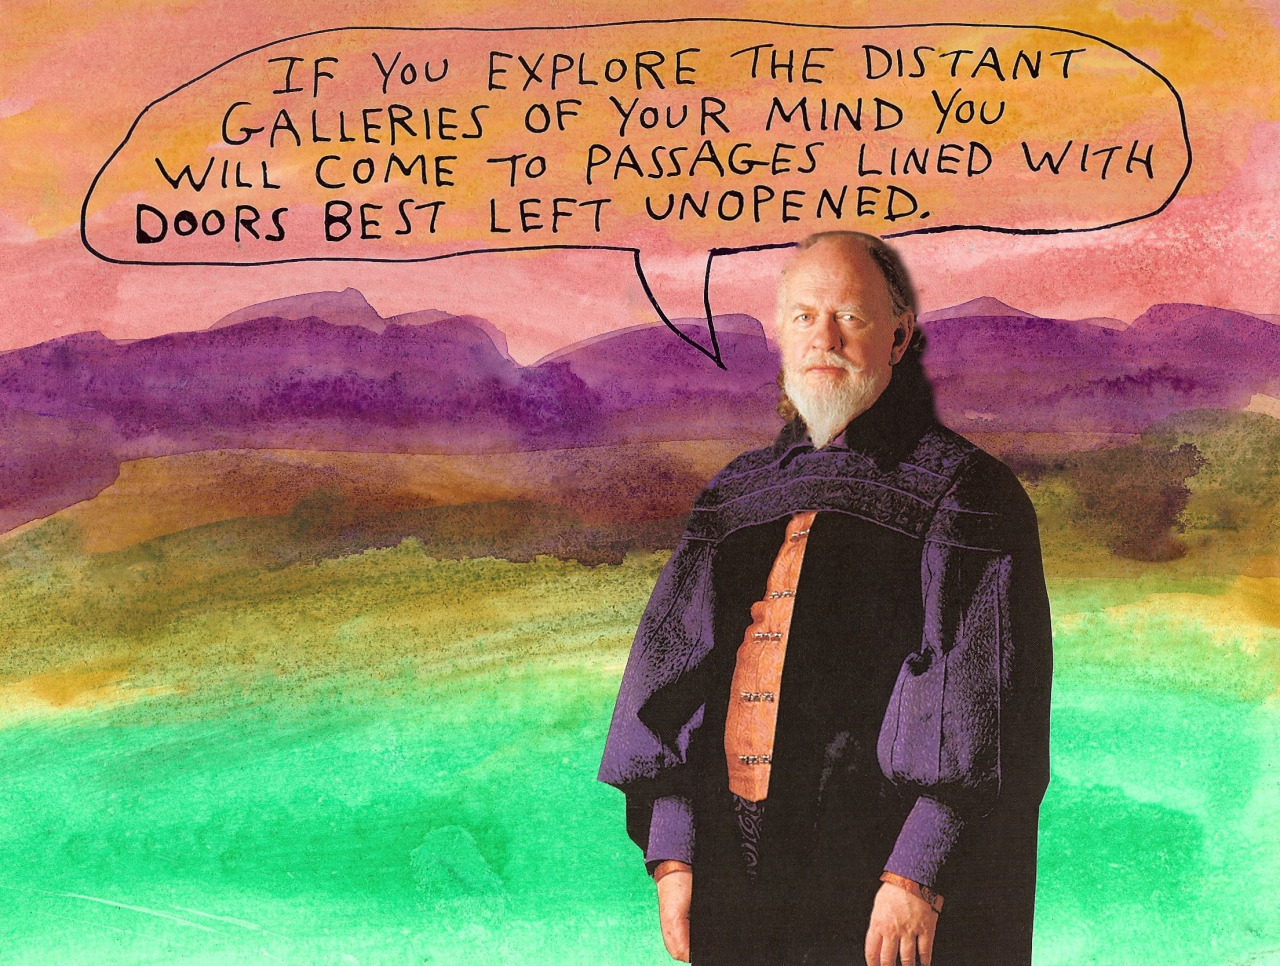 IF YOU EXPLORE THE DISTANT
GALLERIES OF YOUR MIND YOU
WILL COME TO PASSAGES LINED WITH
DOORS BEST LEFT UNOPENED.